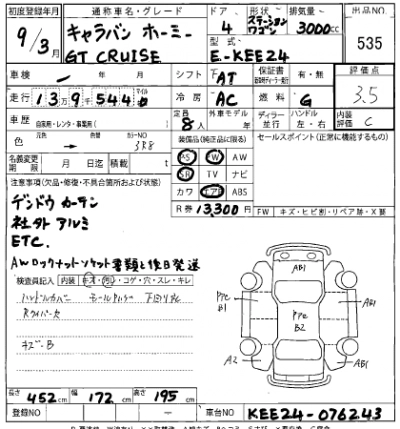 初度登録年月 通称車名・グレード ドア 形状 排気量 出品NO
9/3月 キャラバン ホーミー 4 ステーションワゴン 3000cc 535
GT CRUISE 型式 E-KEE24
車検 年 月 シフト FAT 保証書 有・無 評価点
走行 139544 冷房 AC 燃料 G 3.5
車歴 自家用・レンタ・事業用( ) 定員 8人 外車モデル年 ディーラー 並行 ハンドル 左・右 内装評価 C
色 元色 カラーNo 3R8 装備品(純正品に限る) セールスポイント(正常に機能するもの)
AS PW AW
名義変更期限 月 日迄 積載 t SR TV ナビ
注意事項(欠品・修復・不具合箇所および状態) カワ エアB ABS
R券 13,300円 FW キズ・ヒビ割・リペア跡・X要
デンドウ カーテン
社外アルミ
ETC.
AWロックナットソケット書類と後日発送
検査員記入 内装 キズ・汚レ・コゲ・穴・スレ・キレ
ハンドルカバー
キズ・B
AB1
AB1
B1
B2
A2
AB1
長さ 452cm 幅 172cm 高さ 195cm
登録NO 車台NO KEE24-076243